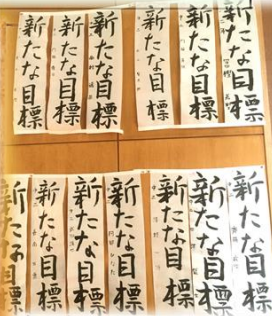 新たな目標
新たな目標
新たな目標
新たな目標
新たな目標
新たな目標
新たな目標
新たな目標
新たな目標
新たな目標
新たな目標
新たな目標
新たな目標